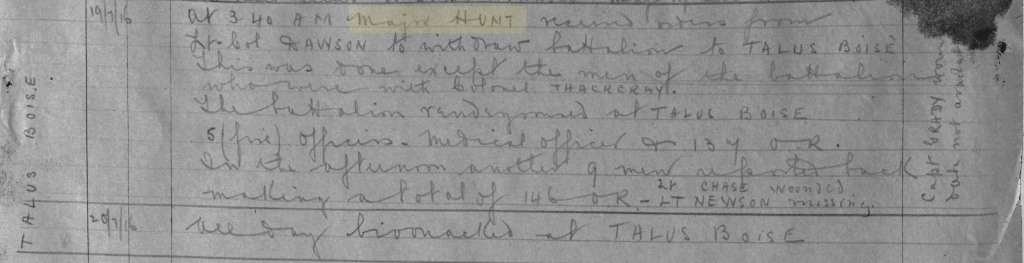 TALUS BOISE
19/7/16
at 3 40 AM Major HUNT received orders from
Lt-Col DAWSON to withdraw battalion to TALUS BOISE
This was done except the men of the battalion
who were with Colonel THACKERAY.
The battalion rendezvoused at TALUS BOISE
5 (five) officers - Medical officer & 137 O.R.
In the afternoon another 9 men reported back
making a total of 146 O.R. - Lt CHASE wounded
LT NEWSON missing.
20/7/16
All day bivouacked at TALUS BOISE
Capt GRADY
Date not